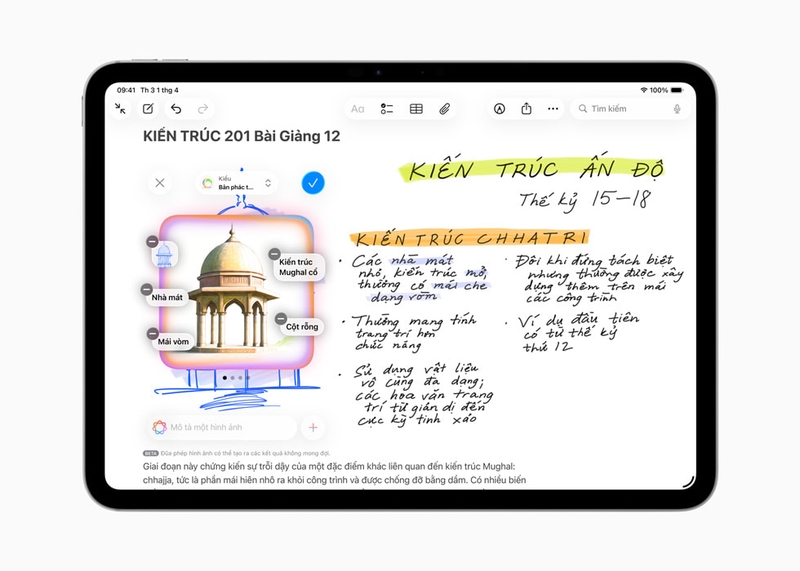 09:41 Th 3 1 thg 4
100%
Aa
Tìm kiếm
KIẾN TRÚC 201 Bài Giảng 12
Kiểu
Bản phác t...
Kiến trúc
Mughal cổ
Nhà mát
Cột rỗng
Mái vòm
Mô tả một hình ảnh
BETA Đũa phép hình ảnh có thể tạo ra các kết quả không mong đợi.
KIẾN TRÚC ẤN ĐỘ
Thế kỷ 15-18
KIẾN TRÚC CHHATRI
· Các nhà mát
nhỏ, kiến trúc mở,
thường có mái che
dạng vòm
· Thường mang tính
trang trí hơn
chức năng
· Sử dụng vật liệu
vô cùng đa dạng;
các hoa văn trang
trí từ giản dị đến
cực kỳ tinh xảo
· Đôi khi đứng tách biệt
nhưng thường được xây
dựng thêm trên mái
các công trình
· Ví dụ đầu tiên
có từ thế kỷ
thứ 12
Giai đoạn này chứng kiến sự trỗi dậy của một đặc điểm khác liên quan đến kiến trúc Mughal:
chhajja, tức là phần mái hiên nhô ra khỏi công trình và được chống đỡ bằng dầm. Có nhiều biến